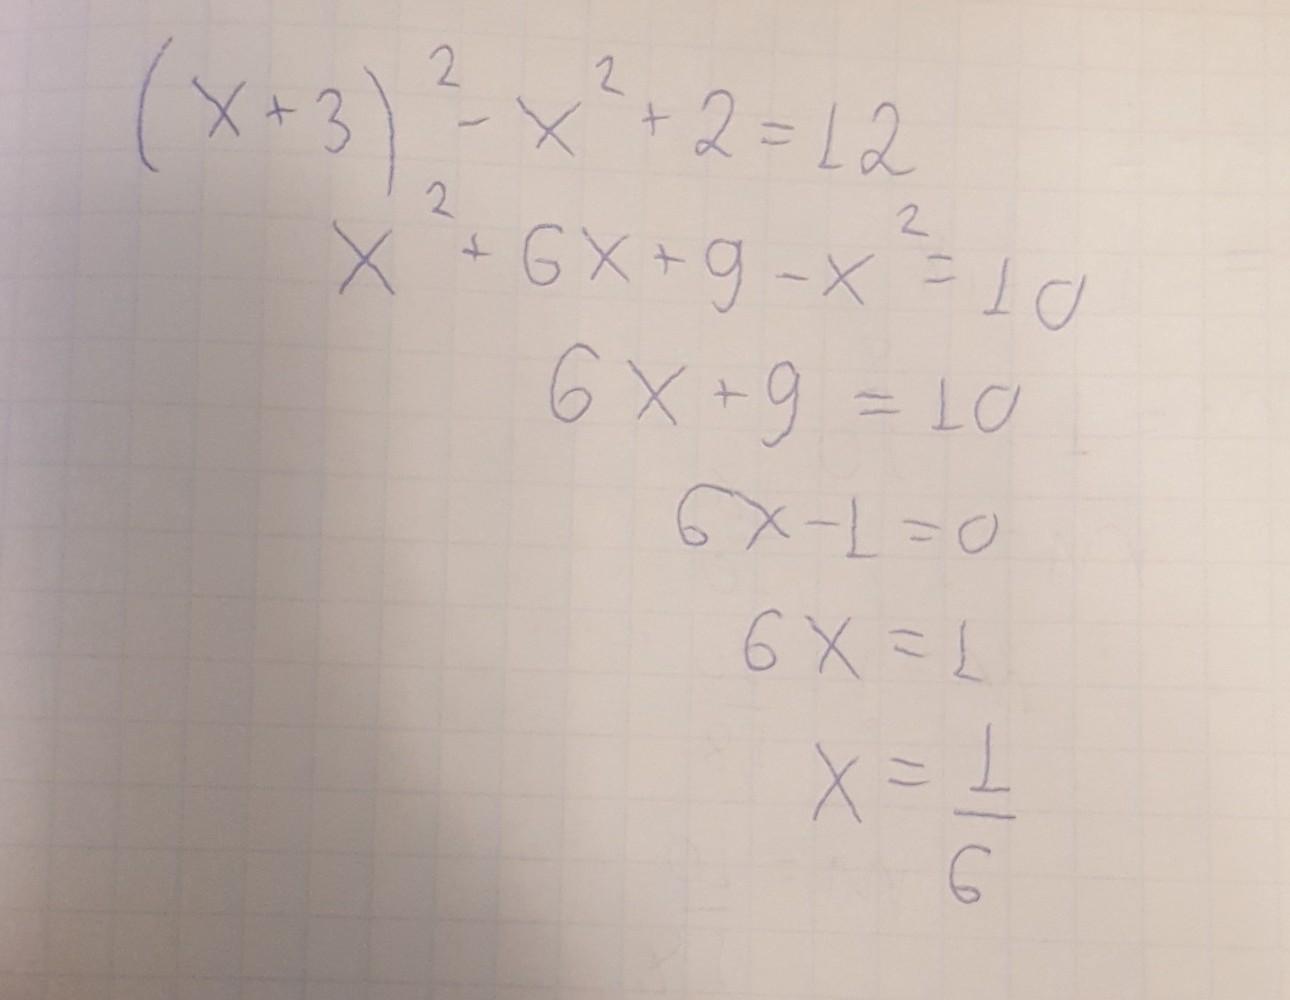 (x+3)² - x² + 2 = 12
x² + 6x + 9 - x² = 10
6x + 9 = 10
6x - 1 = 0
6x = 1
x = 1/6